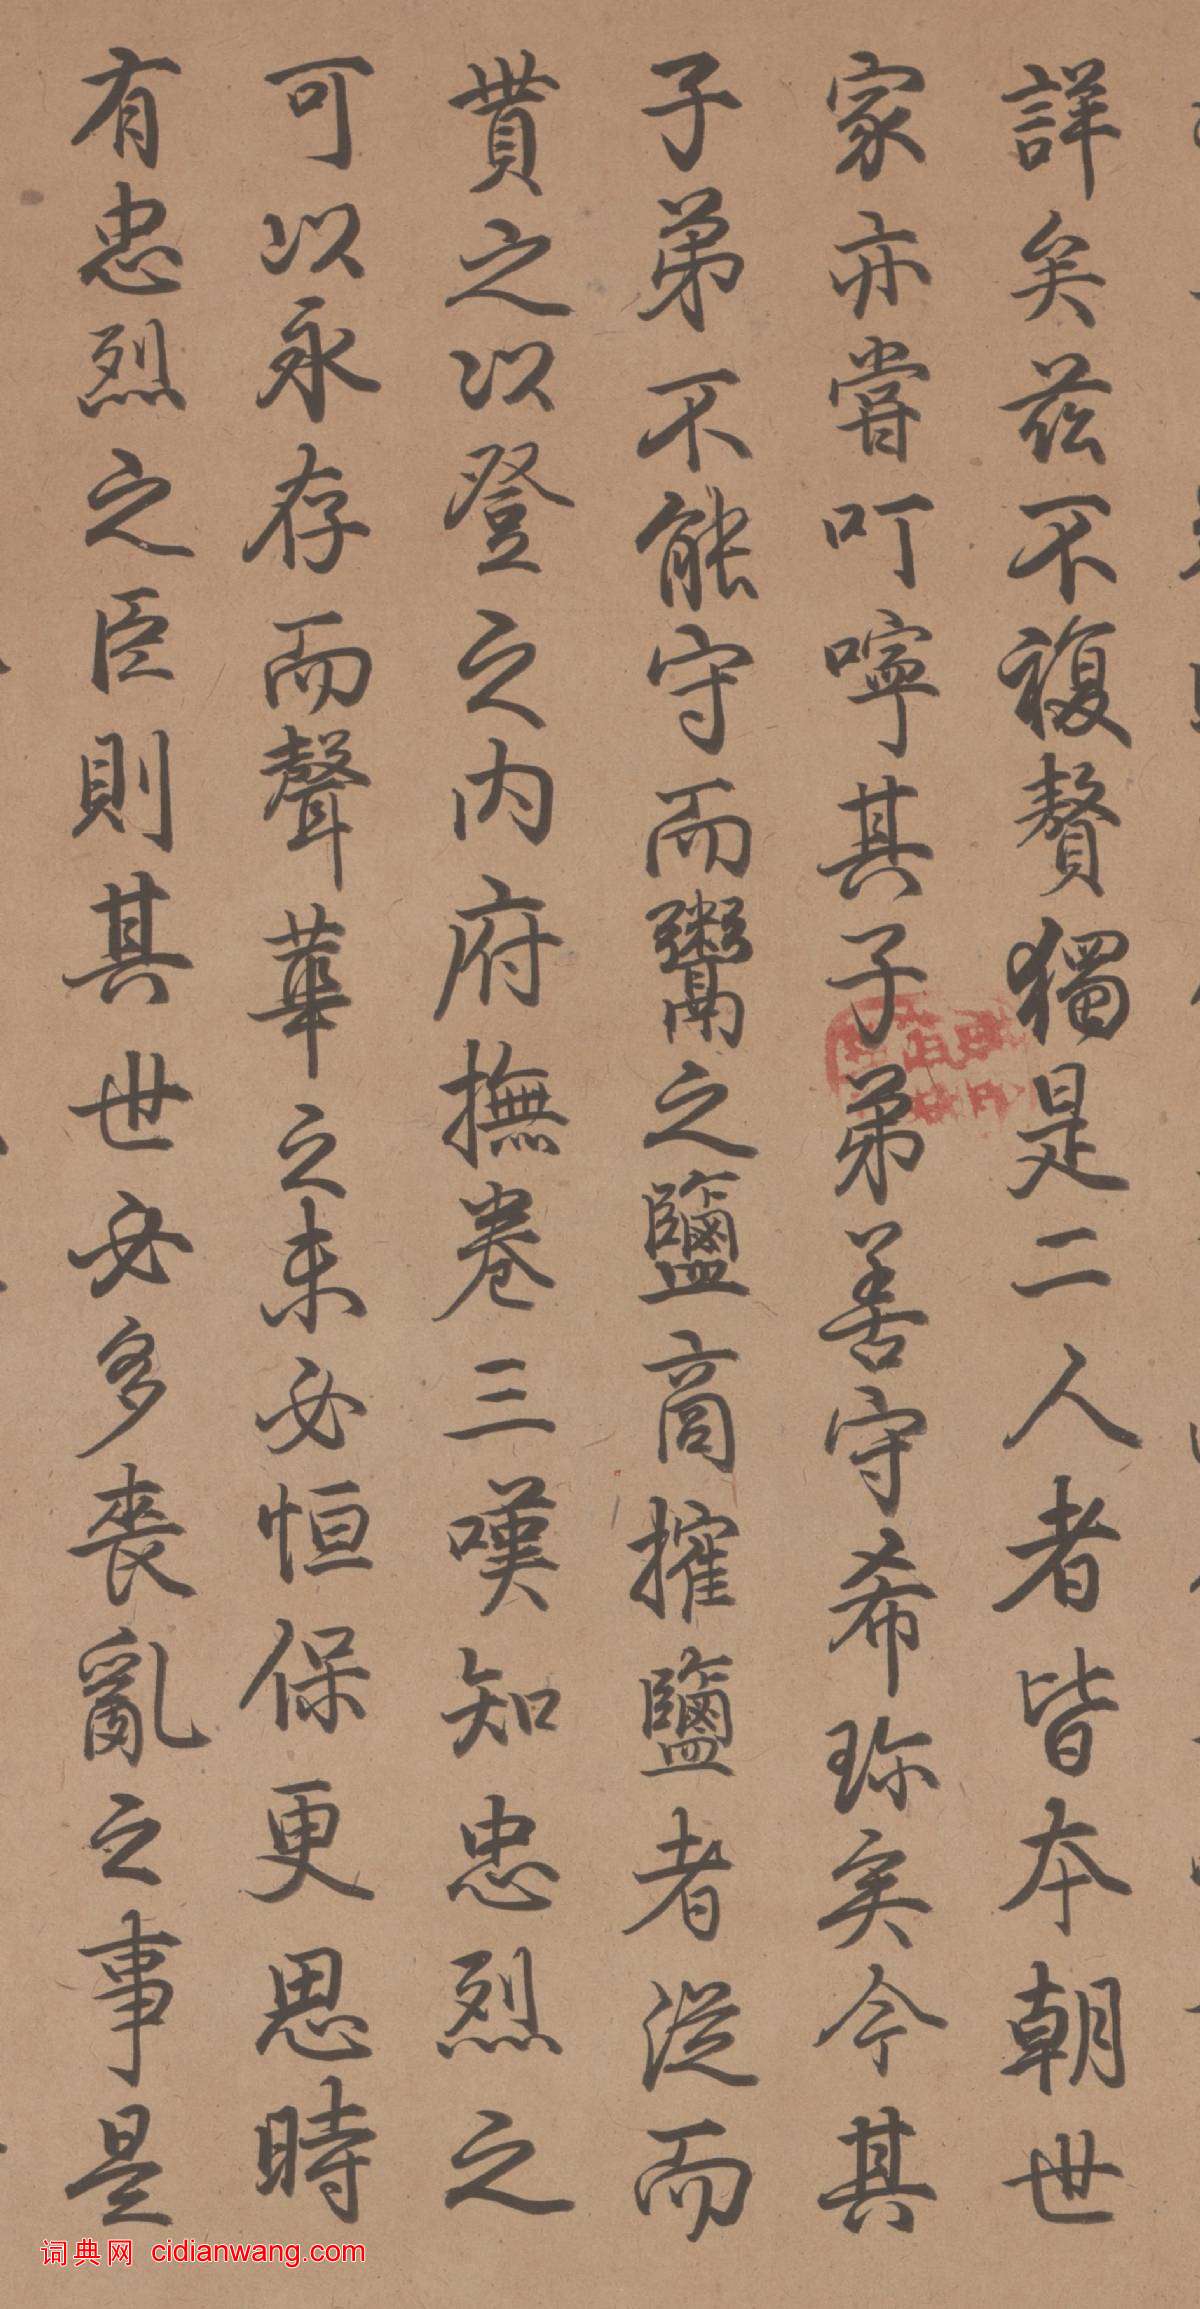 詳矣茲不複贅獨是二人者皆本朝世
家亦嘗叮嚀其子弟善守希珎矣今其
子弟不能守而鬻之鹽商搉鹽者從而
貰之以登之内府撫卷三嘆知忠烈之
可以永存而聲華之未必恒保更思時
有忠烈之臣則其世必多喪亂之事是
词典网 cidianwang.com